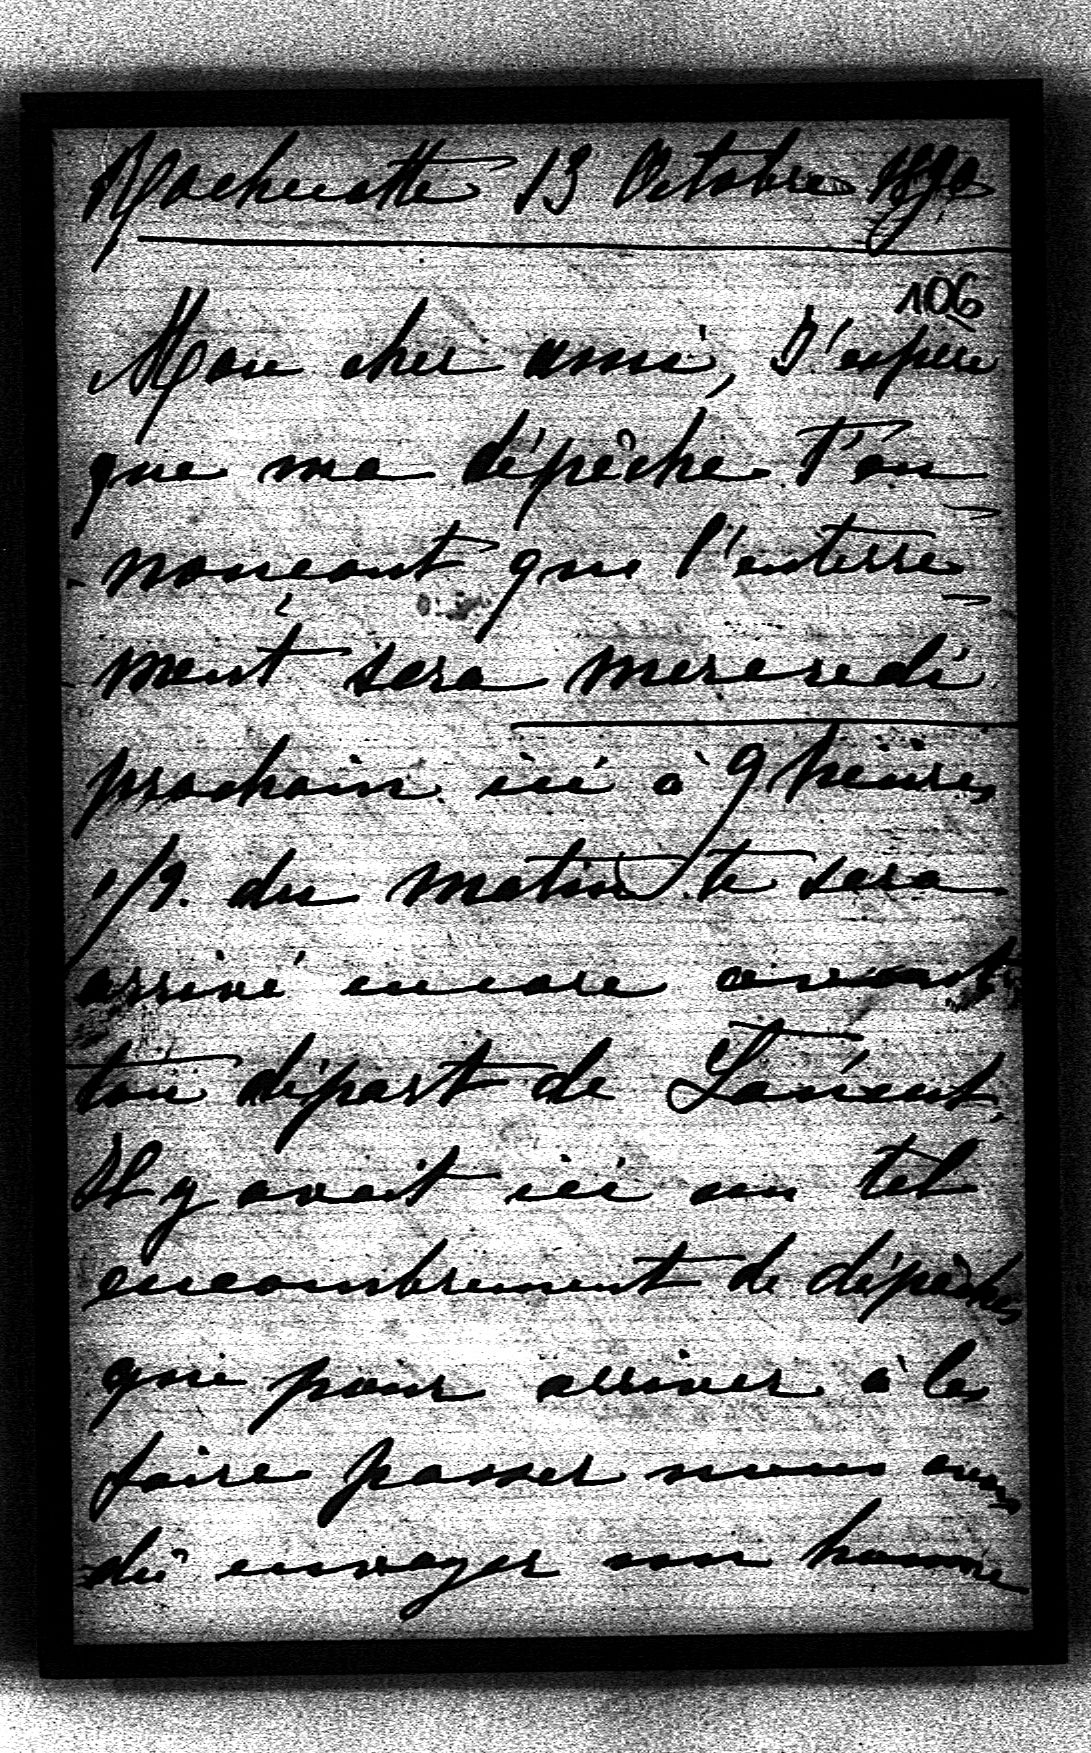 Rochecotte 13 Octobre 1890
106
Mon cher ami, J'espère
que ma dépêche t'an=
-nonçant que l'enterre=
ment sera mercredi
prochain ici à 9 heures
1/2. du matin te sera
arrivé encore avant
ton départ de
Il y avait ici un tel
encombrement de dépêches
que pour arriver à les
faire passer nous avons
dû envoyer un homme